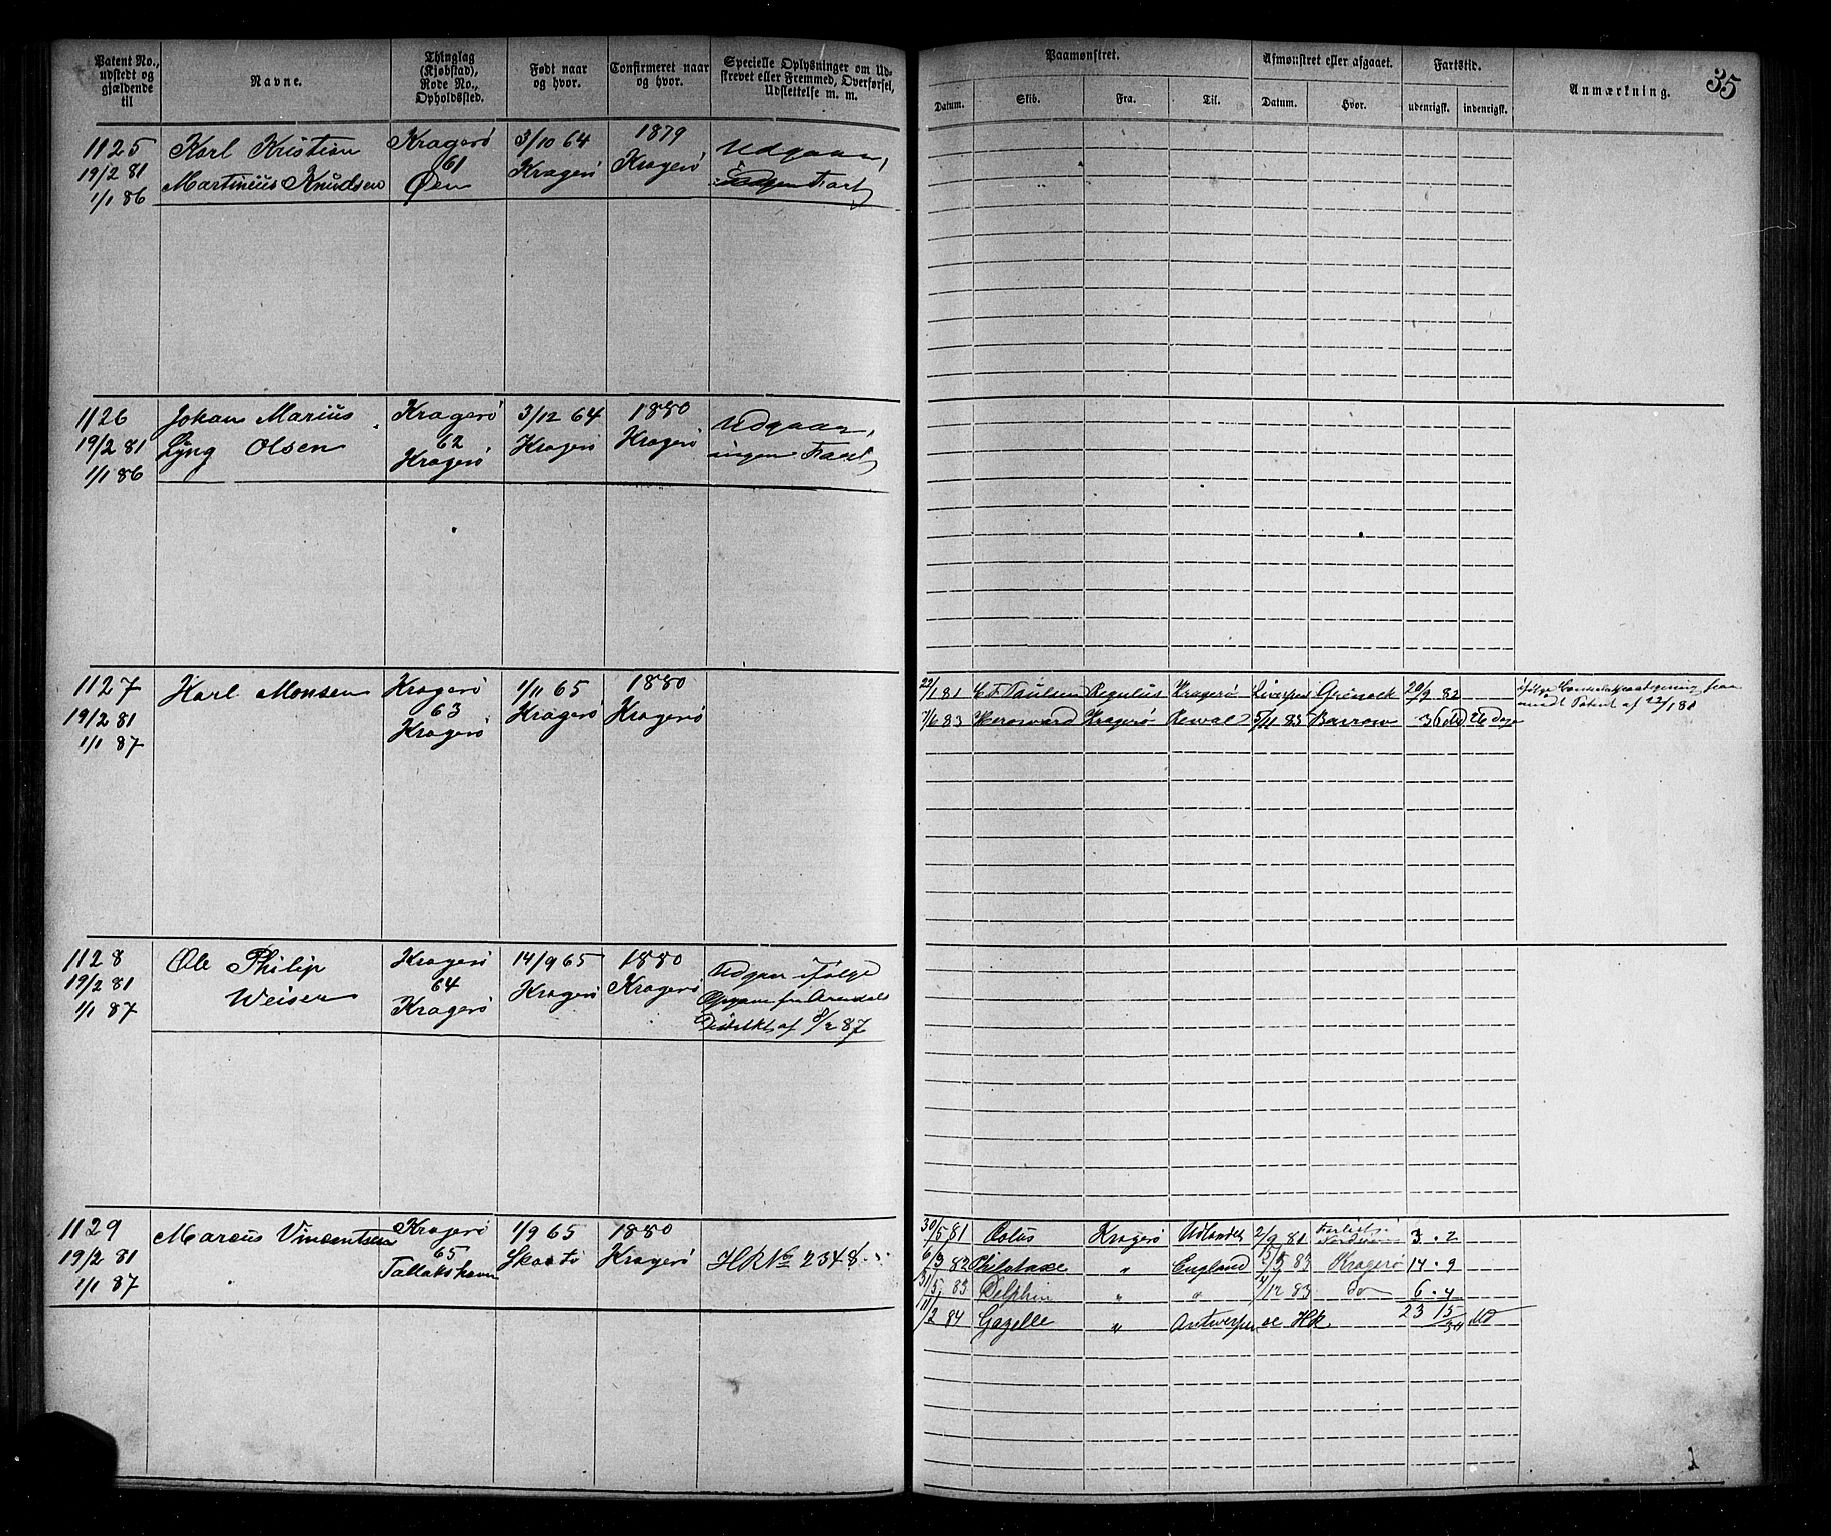 Patent No., udstedt og gjældende til
Navne.
Thinglag (Kjøbstad), Rode No., Opholdssted.
Født naar og hvor.
Confirmeret naar og hvor.
Specielle Oplysninger om Udskrevet eller Fremmed, Overførsel, Udslettelse m. m.
Paamønstret.
Afmønstret eller afgaaet.
Fartstid.
Anmærkning.
35
Datum.
Skib.
Fra.
Til.
Datum.
Hvor.
udenrigsk.
indenrigsk.
1125
19/2 81
1/1 86
Karl Kristian
Martinius Knudsen
Kragerö
61
Øen
3/10 64
Kragerö
1879
Kragerö
Udgaar,
ingen Fart
1126
19/2 81
1/1 86
Johan Marius
Lyng Olsen
Kragerö
62
Kragerö
3/12 64
Kragerö
1880
Kragerö
Udgaar,
ingen Fart
1127
19/2 81
1/1 87
Karl Monsen
Kragerö
63
Kragerö
1/11 65
Kragerö
1880
Kragerö
22/1 81 Regulus Kragerö Liverpool 20/9 82
7/6 83 Kragerö Reval 5/11 83 Barrow 36 Md 26 Dage
ifölge fra
Patent af 22/1 81
1128
19/2 81
1/1 87
Ole Philip
Weisen
Kragerö
64
Kragerö
14/9 65
Kragerö
1880
Kragerö
Udgaar ifölge
Opgave fra Arendals
Distrikt af 8/2 87
1129
19/2 81
1/1 87
Marcus Vincentsen
Kragerö
65
Tallakshavn
1/9 65
Skaatö
1880
Kragerö
HR No 2348
30/5 81 Kragerö Udlandet 2/9 81 3 . 2
6/3 82 " England 83 Kragerö 14 . 9
31/5 83 Delphin " " /12 83 do 6 . 4
11/2 84 Gazelle " Antwerpen se HR. 23 15/30 Md
1